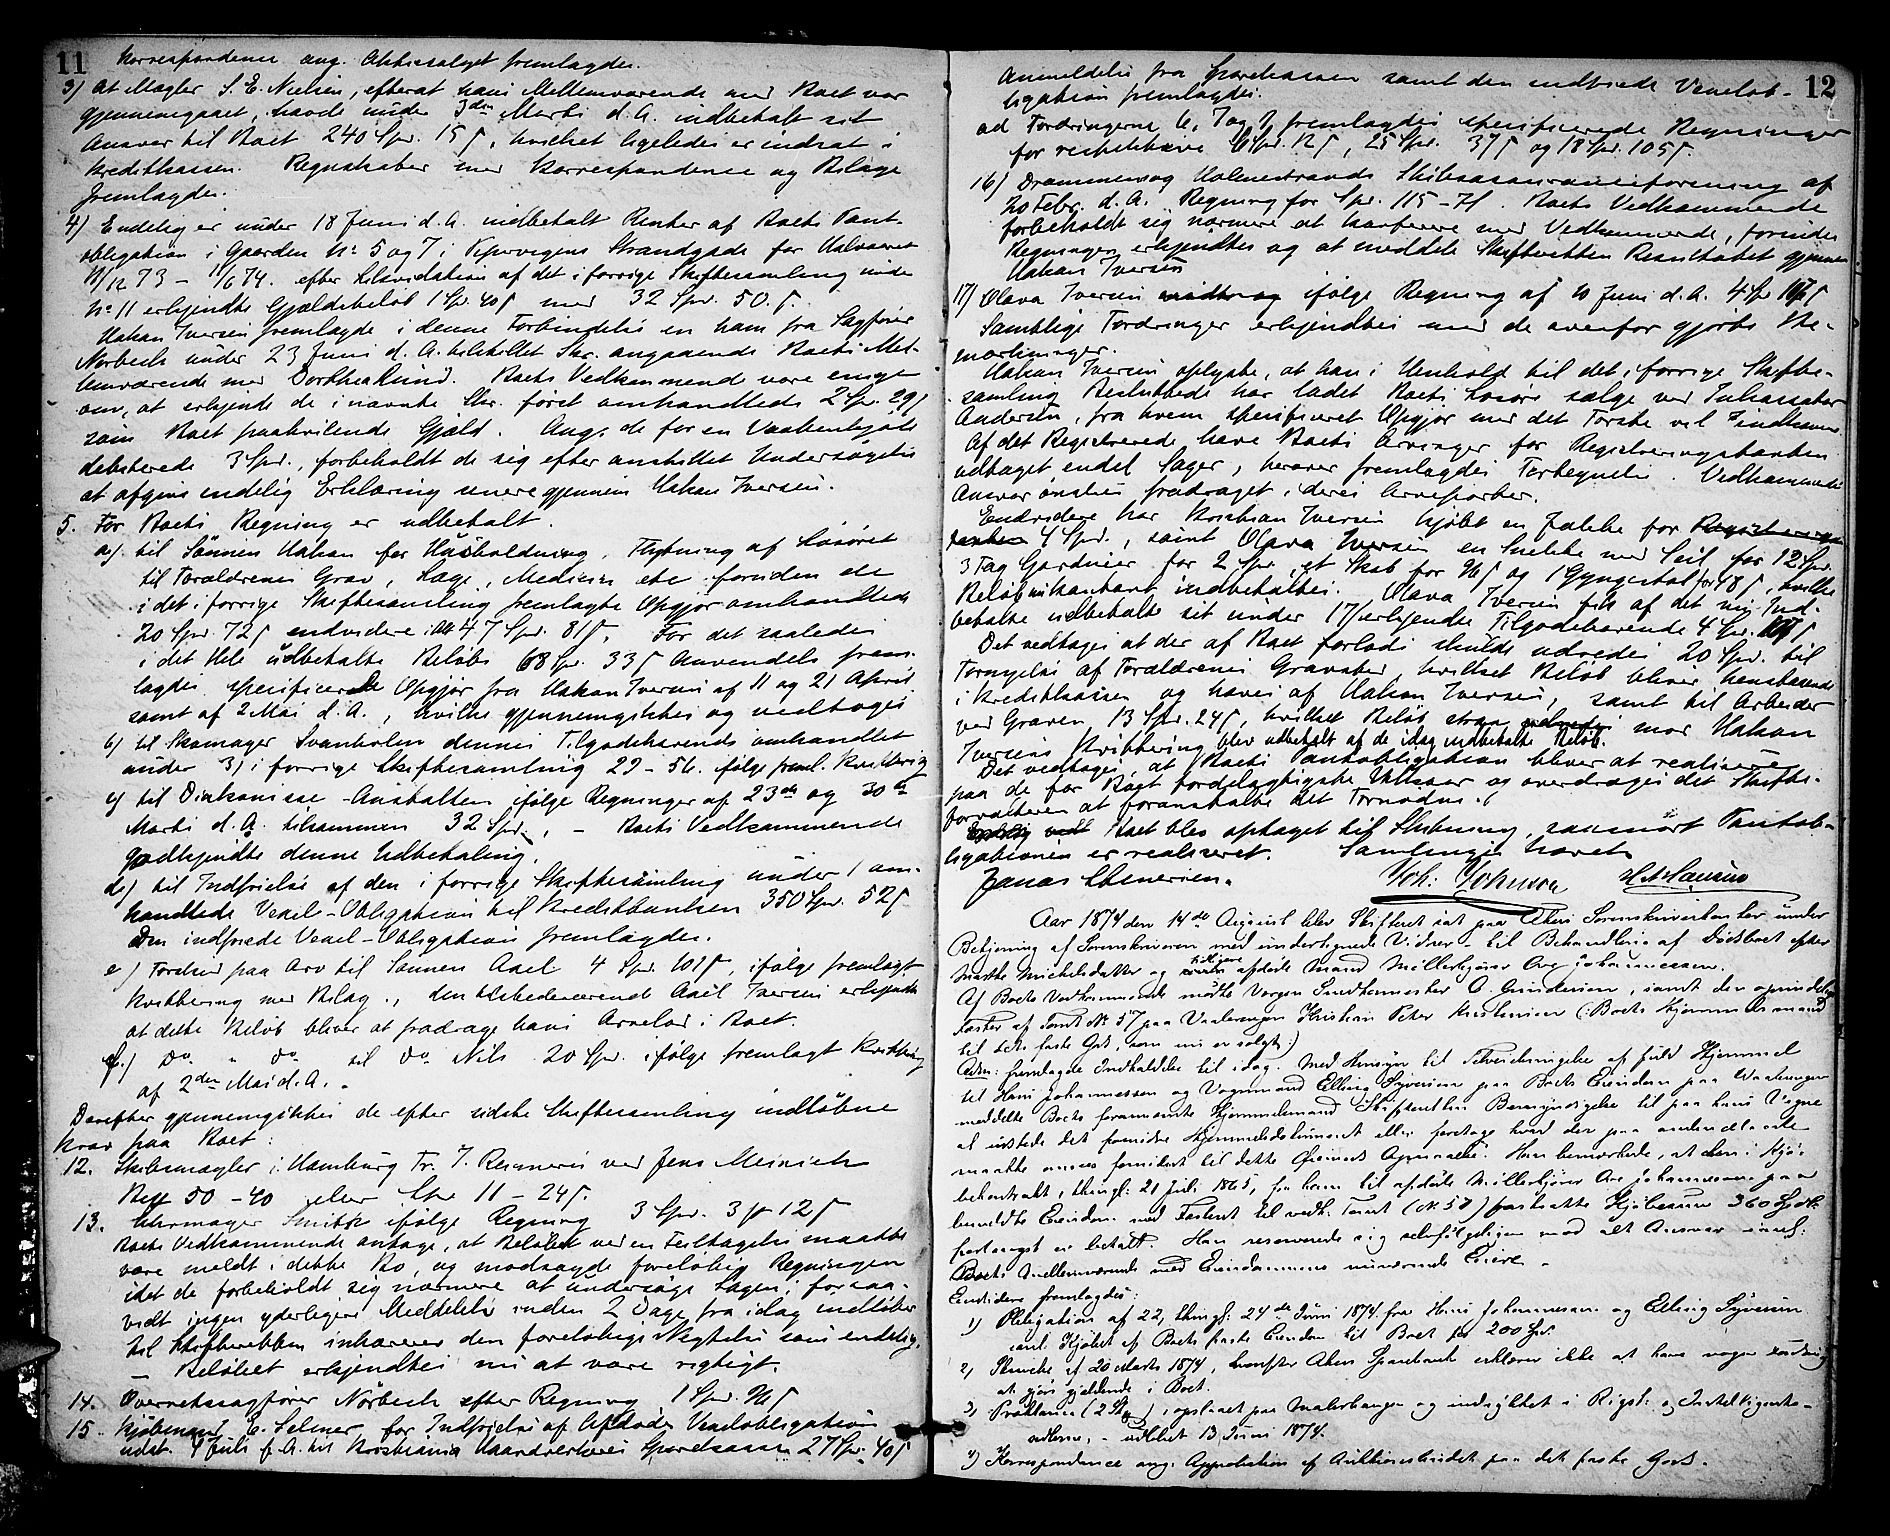 11
Korrespondence ang. Aktiesalget fremlagdes.
3) At Mægler S. E. Nielsen, efterat hans Mellemværende med Boet var
gjennemgaaet, havde under 3die Marts d. A. indbetalt sit
Ansvar til Boet 240 Spd. 15 ß, hvilket ligeledes er indsat i
Kreditkassen. Regnskaber med Korrespondence og Bilage
fremlagdes.
4) Endelig er under 18 Juni d. A. indbetalt Renter af Boets Pant-
obligation i Gaarden No 5 og 7 i Pipervigens Strandgade for Halvaaret
11/12 73 – 11/6 74. efter Likvidation af det i forrige Skiftesamling under
No 11 erkjendte Gjældsbeløb 1 Spd. 40 ß med 32 Spd. 50 ß.
Hakan Iversen fremlagde i denne Forbindelse en ham fra Sagfører
Nørbech under 23 Juni d. A. tilstillet Skr. angaaende Boets Mel-
lemværende med Dorthea Lund. Boets Vedkommende vare enige
om, at erkjende de i nævnte Skr. først omhandlede 2 Spd. 29 ß
som Boet paahvilende Gjæld. Ang. de for en
debiterede 3 Spd., forbeholdt de sig efter anstillet Undersøgelse
at afgive endelig Erklæring senere gjennem Hakan Iversen.
5. For Boets Regning er udbetalt.
a) til Sønnen Hakan for Husholdning, Flytning af Løsøret
til Forældrenes Grav, Læge, Medicin etc. foruden de
i det i forrige Skiftesamling fremlagte Opgjør omhandlede
20 Spd. 72 ß endvidere ialt 47 Spd. 81 ß. For det saaledes
i det Hele udbetalte Beløbs 68 Spd. 33 ß Anvendels frem-
lagdes specificerede Opgjør fra Hakan Iversen af 11 og 21 April
samt af 2 Mai d. A., hvilke gjennemgikkes og vedtoges
b) til Skomager Svanholm dennes Tilgodehavende omhandlet
under 3) i forrige Skiftesamling 29 – 56. ifølge freml. Kvittering
c) til Diakonisse-Anstalten ifølge Regninger af 23de og 30te
Marts d. A. tilsammen 32 Spd., – Boets Vedkommende
godkjendte denne Udbetaling.
d) til Indfrielse af den i forrige Skiftesamling under 1 om-
handlede Vexel-Obligation til Kreditbanken 350 Spd. 52 ß
Den indfriede Vexel-Obligation fremlagdes.
e) Forskud paa Arv til Sønnen Axel 4 Spd. 101 ß, ifølge fremlagt
Kvittering med Bilag., den tilstedeværend Axel Iversen erkjendte
at dette Beløb bliver at fradrage hans Arvelod i Boet.
f.) Do " do til do Nils 20 Spd. ifølge fremlagt Kvittering
af 2den Mai d. A. –
Derefter gjennemgikkes de efter sidste Skiftesamling indløbne
Krav paa Boet:
12. Skibsmægler i Hamburg Fr. J. Reimers ved Jens Meinich
50 – 40 eller Spd 11 – 24 ß.
13. Uhrmager Smith ifølge Regning 3 Spd. 3 12 ß
Boets Vedkommende antage, at Beløbet ved en Feiltagelse maatte
være meldt i dette Bo, og modsagde foreløbig Regningen
idet de forbeholdt sig nærmere at undersøge Sagen; forsaa-
vidt ingen yderligere Meddelelse inden 2 Dage fra idag indløber
til Skifteretten inhærerer den foreløbige Nægtelse som endelig.
– Beløbet erkjendtes nu at være rigtigt.
14. Overretssagfører Nørbech efter Regning 1 Spd. 96 ß
15. Kjøbmand E. Selmer for Indfrielse af Afdødes Vexelobligation
udst. 4 Juli f. A. til Kristiania Haandværkeres Sparekasse 27 Spd. 40 ß
12
Anmeldelse fra Sparekassen samt den indfriede Vexelob-
ligation fremlagdes.
ad Fordringerne 6, 7 og 9 fremlagdes specificerede Regninger
for resp. 6 Spd. 12 ß, 25 Spd. 37 ß og 18 Spd. 105 ß.
16) Drammens og Holmestrands Skibsassuranceforening af
20 Febr. d. A. Regning for Spd. 115 – 71. Boets Vedkommende
forbeholdt sig nærmere at konferere med Vedkommende, forinden
Regningen erkjendtes og at meddele Skifteretten Resultatet gjennem
Hakan Iversen
17) Olava Iversen ifølge Regning af 10 Juni d. A. 4 Spd
Samtlige Fordringer erkjendtes med de ovenfor gjorte Be-
mærkninger.
Hakan Iversen oplyste, at han i Henhold til det i forrige Skiftes-
samling Besluttede har ladet Boets Løsøre sælge ved Inkassator
Andersen, fra hvem specificeret Opgjør med det Første vil indkomme.
Af det Registrerede have Boets Arvinger for Registreringstaxten
udtaget endel Sager, hvorover fremlagdes Fortegnelse. Vedkommendes
Ansvar ønskes fradraget i deres Arveparter.
Endvidere har Kristian Iversen kjøbt en Jakke for
4 Spd., samt Olava Iversen en Snekke med Seil for 12 Spd.
3 Fag Gardiner for 2 Spd, et Skab for 96 ß og 1 Gyngestol for 48 ß, hvilke
Beløb nu kontant indbetaltes. Olava Iversen fik af det nys Ind-
betalte udbetalt sit under 17/ erkjendte Tilgodehavende 4 Spd.
Det vedtoges at der af Boet forlods skulde udredes 20 Spd. til
Fornyelse af Forældrenes Gravsted, hvilket Beløb bliver henstaaende
i Kreditkassen og hæves af Hakan Iversen, samt til Arbeider
ved Graven 13 Spd. 24 ß, hvilket Beløb strax mod Hakan
Iversens Kvittering blev udbetalt af de idag indbetalte Beløb.
Det vedtoges, at Boets Pantobligation bliver at realisere
paa de for Boet fordelagtigste Vilkaar og overdroges det Skifte-
forvalteren at foranstalte det Fornødne.
Boet blev optaget til Slutning, saasnart Pantob-
ligationen er realiseret. Samlingen hævet.
Joh: Johnson H. Hansen
Aar 1874 den 14de August blev Skifteret sat paa Akers Sorenskriverkontor under
Betjening af Sorenskriveren med undertegnede Vidner – til Behandling af Dødsboet efter
Marthe Michelsdatter og tidligere afdøde Mand Møllerkjører Ove Johannessen.
Af Boets Vedkommende mødte Værgen Snedkermester A. Gundersen, samt den oprindelige
Fæster af Tomt No 57 paa Vaalerengen Kristian Peter Kristensen (: Boets Hjemmelsmand
til dets faste Gods, som nu er solgt:)
Adm: fremlagde Indkaldelse til idag. Med Hensyn til Tilveiebringelse af fuld Hjemmel
til Hans Johannessen og Vognmand Elling Syversen paa Boets Eiendom paa Vaalerengen
meddelte Boets forannævnte Hjemmelsmand Skifteretten Bemyndigelse til paa hans Vegne
at udstede det fornødne Hjemmelsdokument eller foretage hvad der paa anden Maade
maatte ansees fornødent til dette Øiemeds Opnaaelse. Han bemærkede, at den i Kjø-
bekontrakt, thingl: 21 Juli 1865, fra ham til afdøde Møllerkjører Ove Johannessen paa
bemeldte Eiendom med Fæsteret til vedk. Tomt (No 57) fastsatte Kjøbesum 360 Spd
forlængst er betalt. Han reserverede sig selvfølgeligen mod alt Ansvar med:
Boets Mellemværende med Eiendommens nuværende Eiere. –
Endvidere fremlagdes:
1) Obligation af 22, thingl: 24de Juni 1874 fra Hans Johannessen og Elling Syversen
anl. Kjøbet af Boets faste Eiendom til Boet for 200 Spd.
2) Skrivelse af 20 Marts 1874, hvorefter Akers Sparebank erklærer ikke at have nogen Fordring
at gjøre gjældende i Boet.
3) Proklama (2 Stk) opslaaet paa Vaalerengen og indrykket i Rigst: og Intelligents-
sedlerne, – udstedt 13 Juni 1874.
4) Korrespondance ang. Approbation af Auktionsbudet paa det faste Gods.